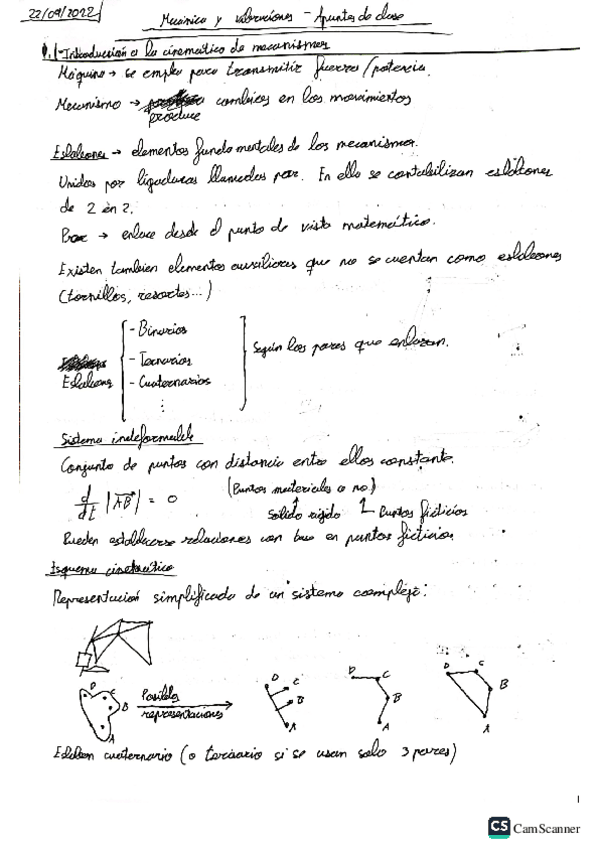 22/09/2022
Mecánica y vibraciones - Apuntes de clase
1-Introducción a la cinemática de mecanismos
Máquina → se emplea para transmitir fuerza/potencia.
Mecanismo → produce cambios en los movimientos
Eslabones → elementos fundamentales de los mecanismos.
Unidos por ligaduras llamadas par. En ella se contabilizan eslabones
de 2 en 2.
Par → enlace desde el punto de vista matemático.
Existen también elementos auxiliares que no se cuentan como eslabones
(tornillos, resortes...)
Eslabones
- Binarios
- Ternarios
- Cuaternarios
⋮
Según los pares que enlazan.
Sistema indeformable
Conjunto de puntos con distancia entre ellos constante.
d/dt |AB| = 0 (Puntos materiales o no)
Sólido rígido Puntos ficticios
Pueden establecerse relaciones con base en puntos ficticios
Esquema cinemático
Representación simplificada de un sistema complejo:
D C B A
Posibles
representaciones
D C B A
D C B A
D C B A
Eslabón cuaternario (o ternario si se usan solo 3 pares)
1
CS CamScanner